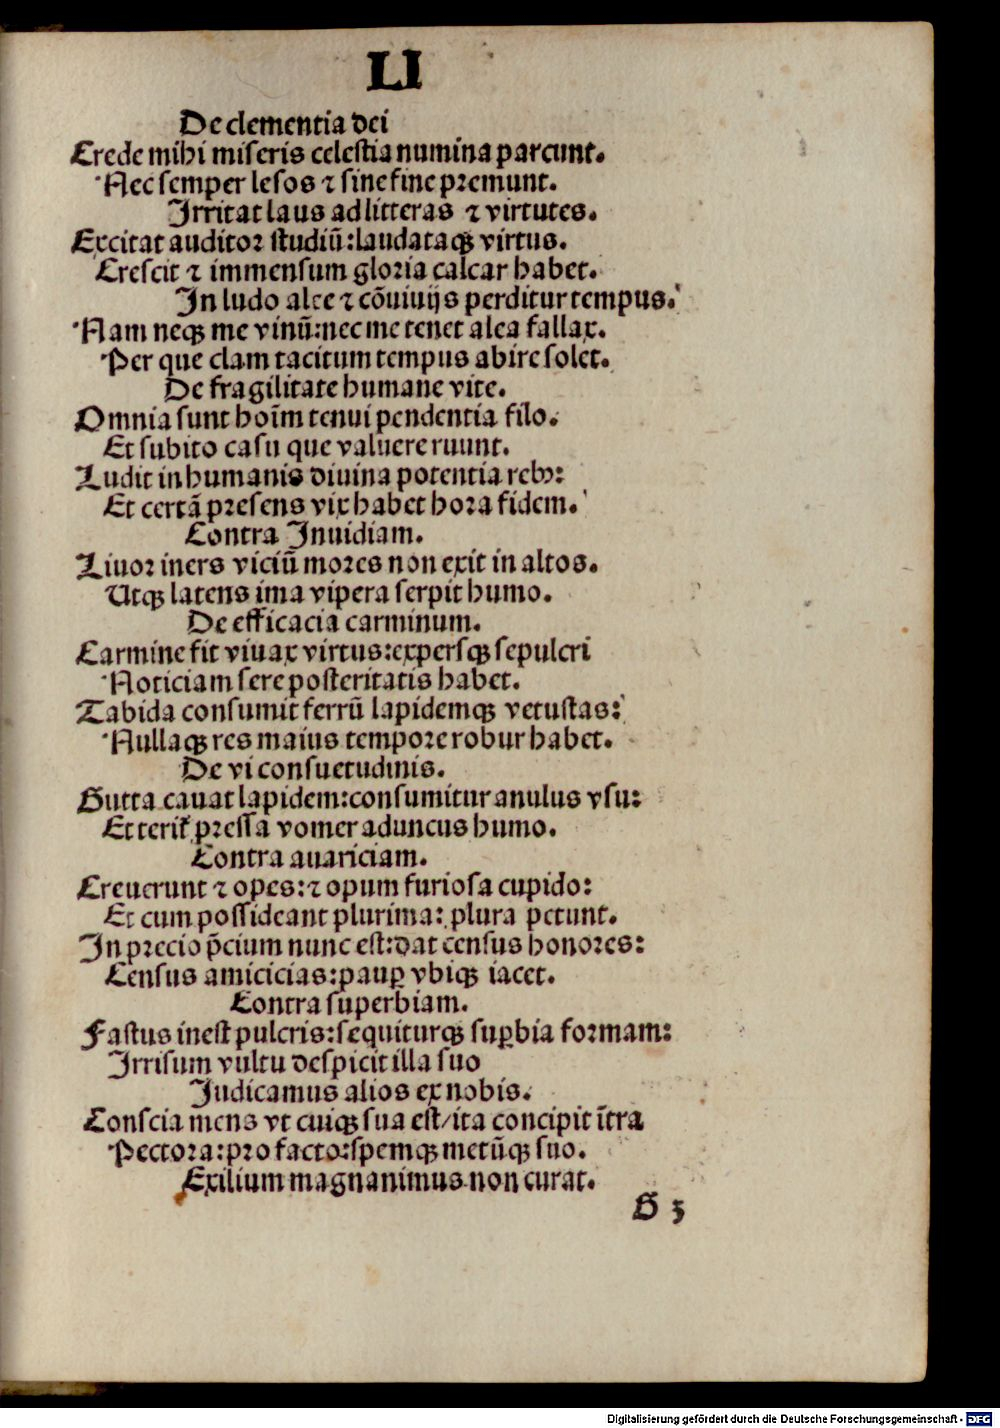 LI
De clementia dei
Crede mihi miseris celestia numina parcunt.
Nec semper lesos ⁊ sine fine premunt.
Irritat laus ad litteras ⁊ virtutes.
Excitat auditor studiū: laudataqꝫ virtus.
Crescit ⁊ immensum gloria calcar habet.
In ludo alee ⁊ cōuiuijs perditur tempus.
Nam neqꝫ me vinū: nec me tenet alea fallax.
Per que clam tacitum tempus abire solet.
De fragilitate humane vite.
Omnia sunt hoīm tenui pendentia filo.
Et subito casu que valuere ruunt.
Ludit in humanis diuina potentia rebꝰ:
Et certā presens vix habet hora fidem.
Contra Inuidiam.
Liuor iners viciū mores non exit in altos.
Utqꝫ latens ima vipera serpit humo.
De efficacia carminum.
Carmine fit viuax virtus: expersqꝫ sepulcri
Noticiam sere posteritatis habet.
Tabida consumit ferrū lapidemqꝫ vetustas:
Nullaqꝫ res maius tempore robur habet.
De vi consuetudinis.
Gutta cauat lapidem: consumitur anulus vsu:
Et teritꝛ pressa vomer aduncus humo.
Contra auariciam.
Creuerunt ⁊ opes: ⁊ opum furiosa cupido:
Et cum possideant plurima: plura petunt.
In precio p̄cium nunc est: dat census honores:
Census amicicias: paup̲ vbiqꝫ iacet.
Contra superbiam.
Fastus inest pulcris: sequiturqꝫ sup̲bia formam:
Irrisum vultu despicit illa suo
Iudicamus alios ex nobis.
Conscia mens vt cuiqꝫ sua est/ ita concipit ītra
Pectora: pro facto: spemqꝫ metūqꝫ suo.
Exilium magnanimus non curat.
G 3
Digitalisierung gefördert durch die Deutsche Forschungsgemeinschaft - DFG